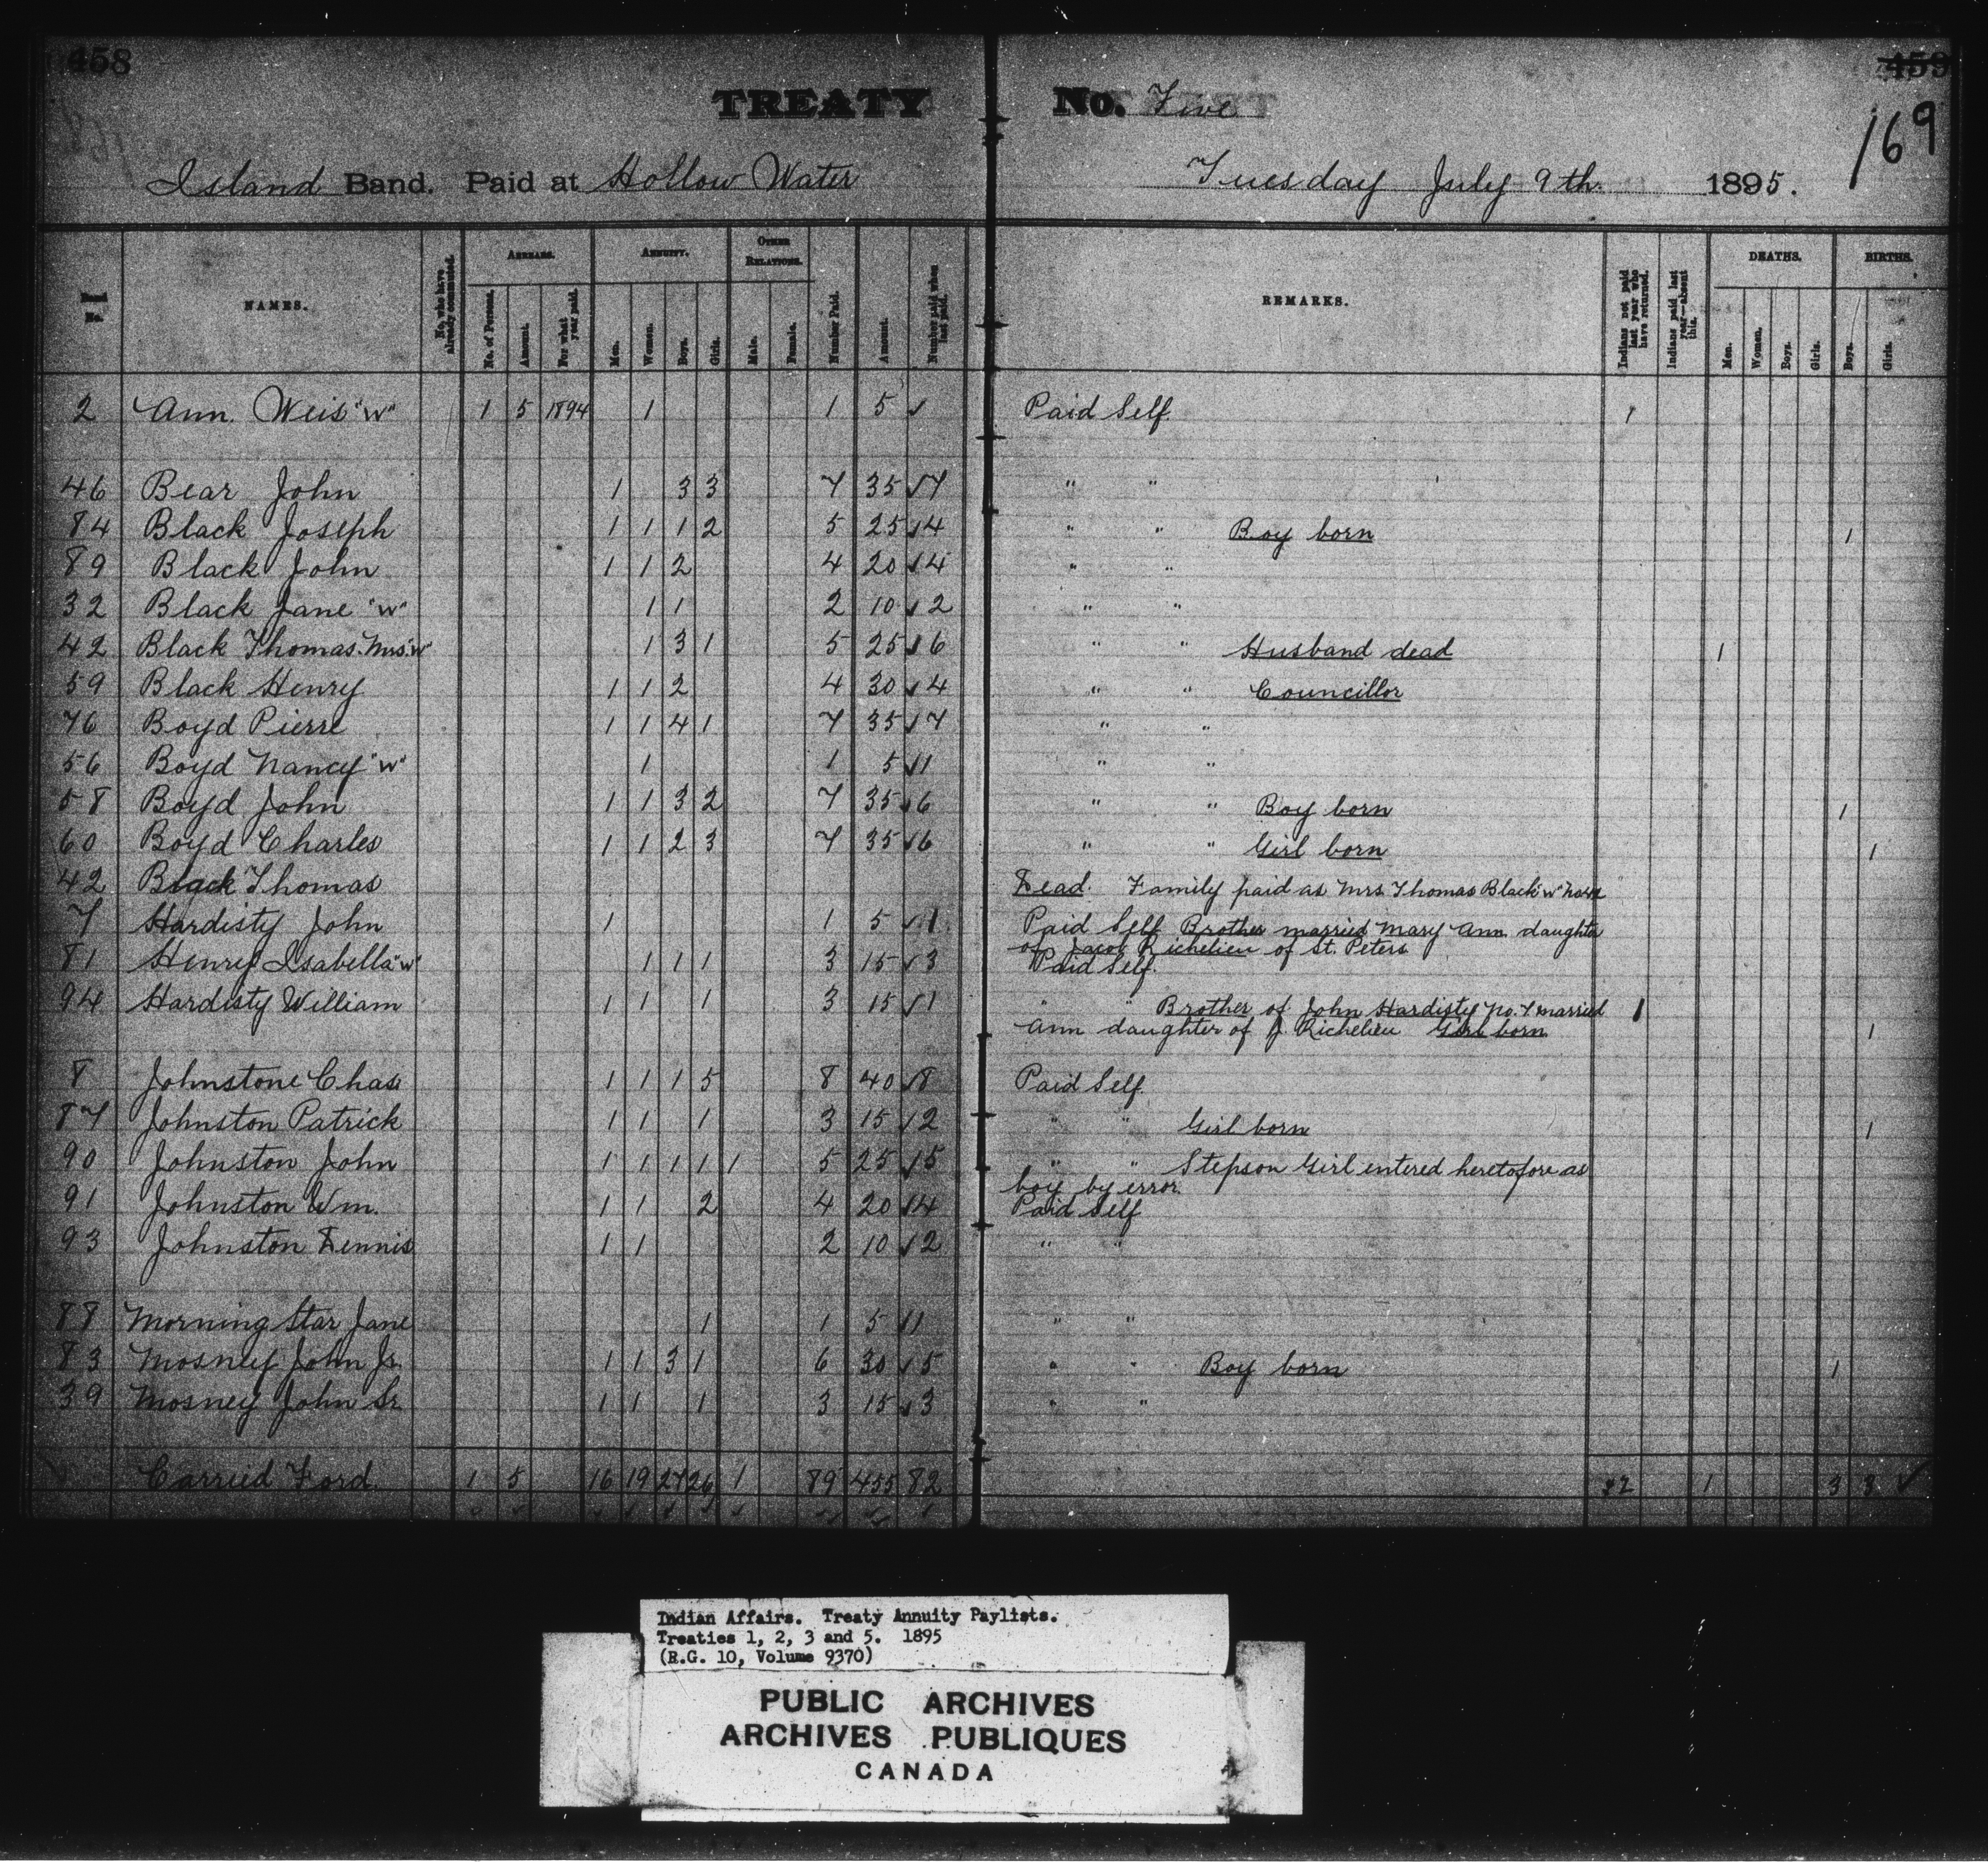 458
459
169
TREATY No. Five
Island Band. Paid at Hollow Water Tuesday July 9th. 1895.
Band No. NAMES. No. who have already commuted. ARREARS. No. of Persons. Amount. For what year paid. ANNUITY. Men. Women. Boys. Girls. OTHER RELATIONS. Male. Female. Number Paid. Amount. Number paid when last paid. REMARKS. Indians not paid last year who have returned. Indians paid last year—absent this. DEATHS. Men. Women. Boys. Girls. BIRTHS. Boys. Girls.
2 Ann. Weis "W" 1 5 1894 1 1 5 ✓ Paid Self. 1
46 Bear John 1 3 3 7 35 ✓ 7 " "
84 Black Joseph 1 1 1 2 5 25 ✓ 4 " " Boy born 1
89 Black John 1 1 2 4 20 ✓ 4 " "
32 Black Jane "W" 1 1 2 10 ✓ 2 " "
42 Black Thomas. Mrs. "W" 1 3 1 5 25 ✓ 6 " " Husband dead 1
59 Black Henry 1 1 2 4 30 ✓ 4 " " Councillor
76 Boyd Pierre 1 1 4 1 7 35 ✓ 7 " "
56 Boyd Nancy "W" 1 1 5 ✓ 1 " "
58 Boyd John 1 1 3 2 7 35 ✓ 6 " " Boy born 1
60 Boyd Charles 1 1 2 3 7 35 ✓ 6 " " Girl born 1
42 Black Thomas Dead. Family paid as Mrs Thomas Black "W" No 42
7 Hardisty John 1 1 5 ✓ 1 Paid Self Brother married Mary Ann daughter
of Jacob Richelieu of St. Peters
81 Henry Isabella "W" 1 1 1 3 15 ✓ 3 Paid Self.
94 Hardisty William 1 1 1 3 15 ✓ 1 " " Brother of John Hardisty No. 7 married 1
Ann daughter of J. Richelieu Girl born 1
8 Johnstone Chas 1 1 1 5 8 40 ✓ 8 Paid Self.
87 Johnston Patrick 1 1 1 3 15 ✓ 2 " " Girl born 1
90 Johnston John 1 1 1 1 1 5 25 ✓ 5 " " Stepson Girl entered heretofore as
boy by error.
91 Johnston Wm. 1 1 2 4 20 ✓ 4 Paid Self
93 Johnston Dennis 1 1 2 10 ✓ 2 " "
88 Morning Star Jane 1 1 5 ✓ 1 " "
83 Mosney John Jr. 1 1 3 1 6 30 ✓ 5 " " Boy born 1
39 Mosney John Sr 1 1 1 3 15 ✓ 3 " "
Carried Ford. 1 5 16 19 27 26 1 89 455 82 2 1 3 3 ✓
Indian Affairs. Treaty Annuity Paylists.
Treaties 1, 2, 3 and 5. 1895
(R.G. 10, Volume 9370)
PUBLIC ARCHIVES
ARCHIVES PUBLIQUES
CANADA